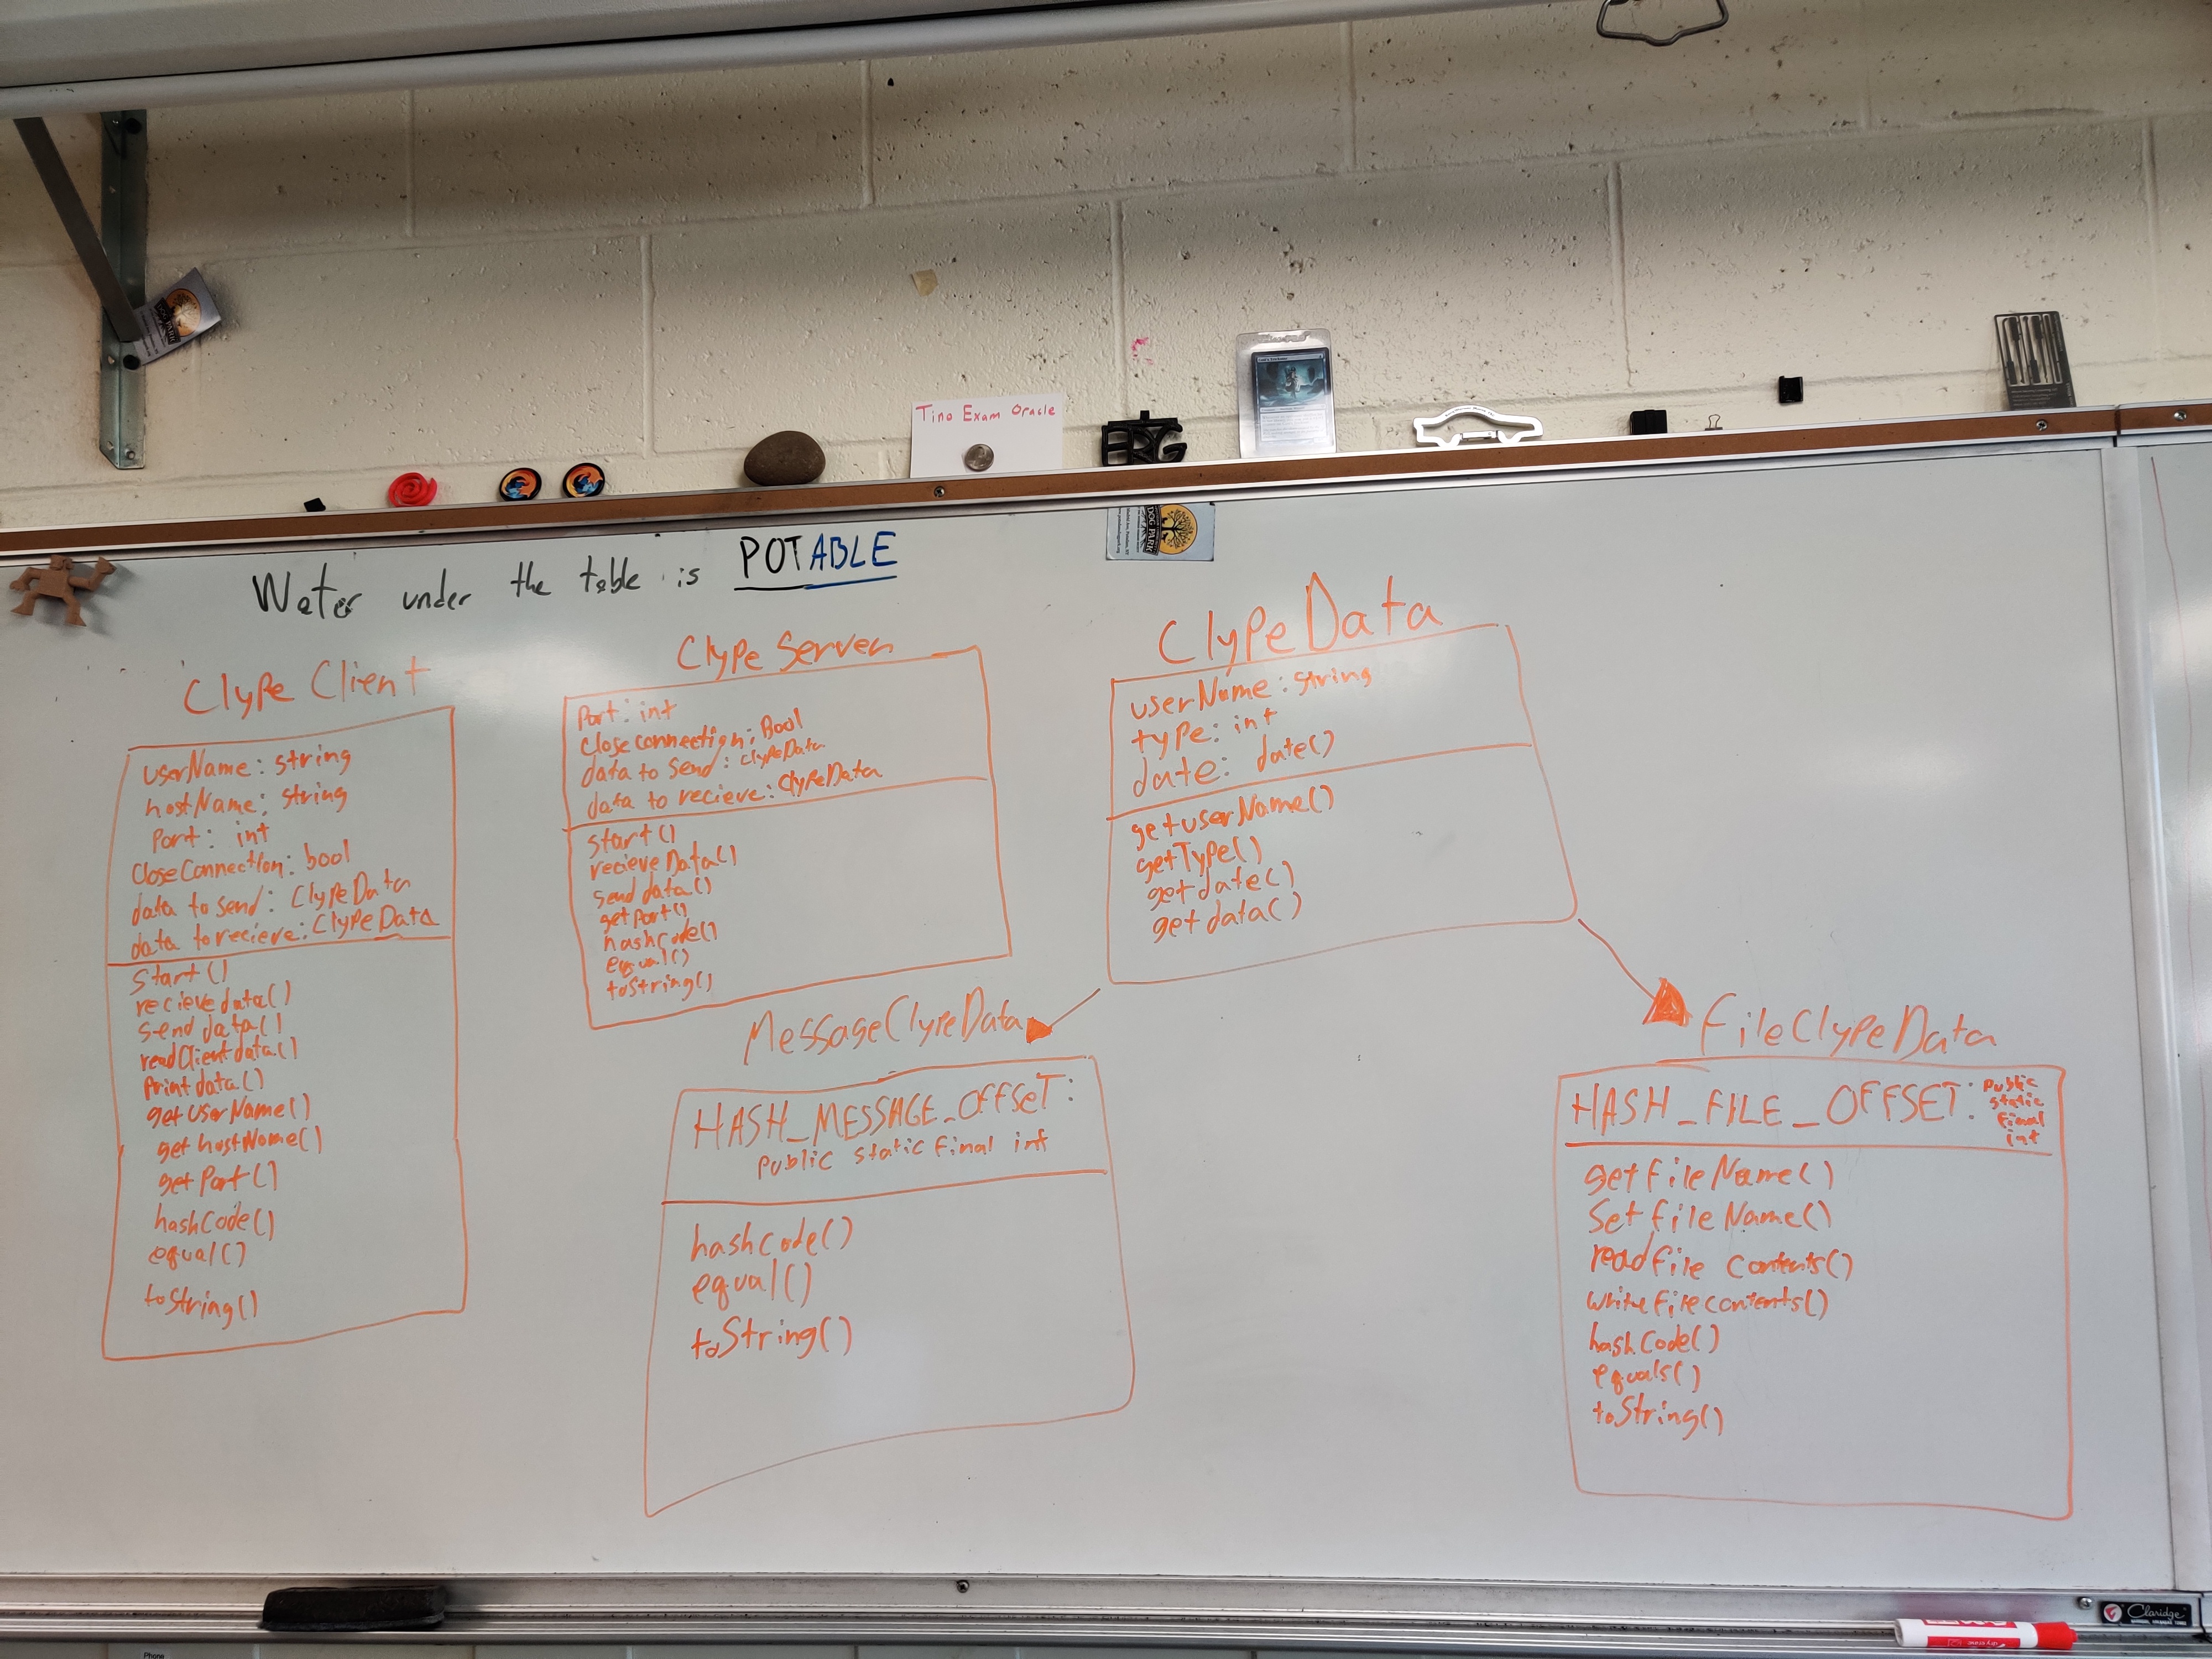 Tino Exam Oracle
ERG
DOG PARK
Water under the table is POTABLE
Clype Client
userName: string
hostName: string
Port: int
CloseConnection: bool
data to send: ClypeData
data to recieve: ClypeData
start()
recieve data()
send data()
readClient data()
Print data()
get UserName()
get hostName()
get Port()
hashCode()
equal()
toString()
Clype Server
Port: int
Close connection: Bool
data to send: clypeData
data to recieve: ClypeData
start()
recieve Data()
send data()
get port()
hashcode()
equal()
toString()
ClypeData
userName: string
type: int
date: date()
get userName()
getType()
get date()
get data()
MessageClypeData
HASH_MESSAGE_OFFSET:
Public static final int
hashcode()
equal()
toString()
fileClypeData
HASH_FILE_OFFSET: Public
static
final
int
get file Name()
Set file Name()
read file Contents()
write file contents()
hashCode()
equals()
toString()
Claridge
Phone